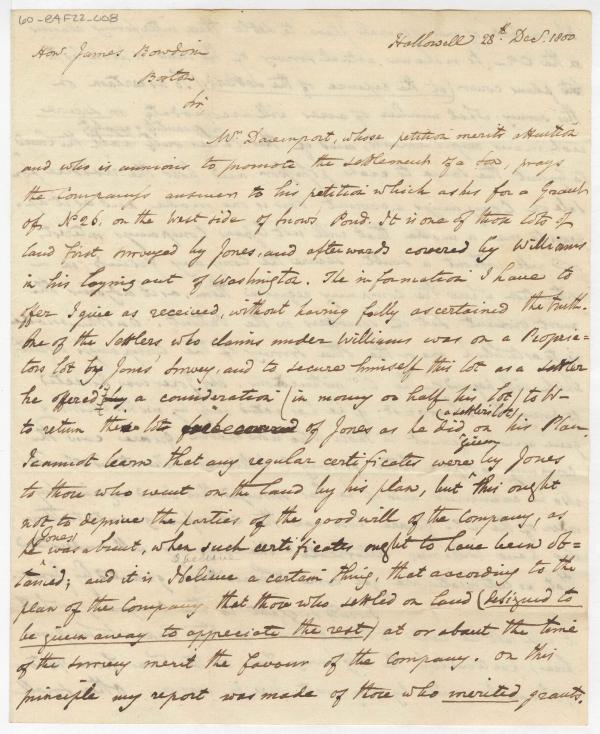 60-P4F22-008
Hallowell 28th Dec. 1800
Hon. James Bowdoin
Boston
Sir
Mr. Davenport, whose petition merits attention
and who is anxious to promote the settlement of a son, prays
the Company's answer to his petition which asks for a Grant
of No 26. on the West side of Snows Pond. It is one of those lots of
land first surveyed by Jones, and afterwards covered by Williams
in his laying out of Washington. The information I have to
offer I give as received, without having fully ascertained the truth.
One of the Settlers who claims under Williams was on a Proprie-
tors lot by Jones' Survey, and to secure himself this lot as a settler
he offered a consideration (in money or half his lot) to W-
to return the lots of Jones as he did on his Plan
(a settlers lot)
I cannot learn that any regular certificates were given by Jones
to those who went on the land by his plan, but this ought
not to deprive the parties of the good will of the Company, as
he (Jones) was about, when such certificates ought to have been ob-
tained; and it is I believe a certain thing, that according to the
plan of the Company that those who settled on land (designed to
be given away to appreciate the rest) at or about the time
of the survey merit the favour of the Company. On this
principle my report was made of those who merited grants.